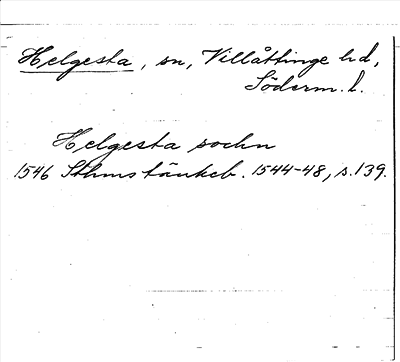 Helgesta, sn, Villåttinge hd,
Söderm. l.
Helgesta sochn
1546 Sthms tänkeb. 1544-48, s. 139.